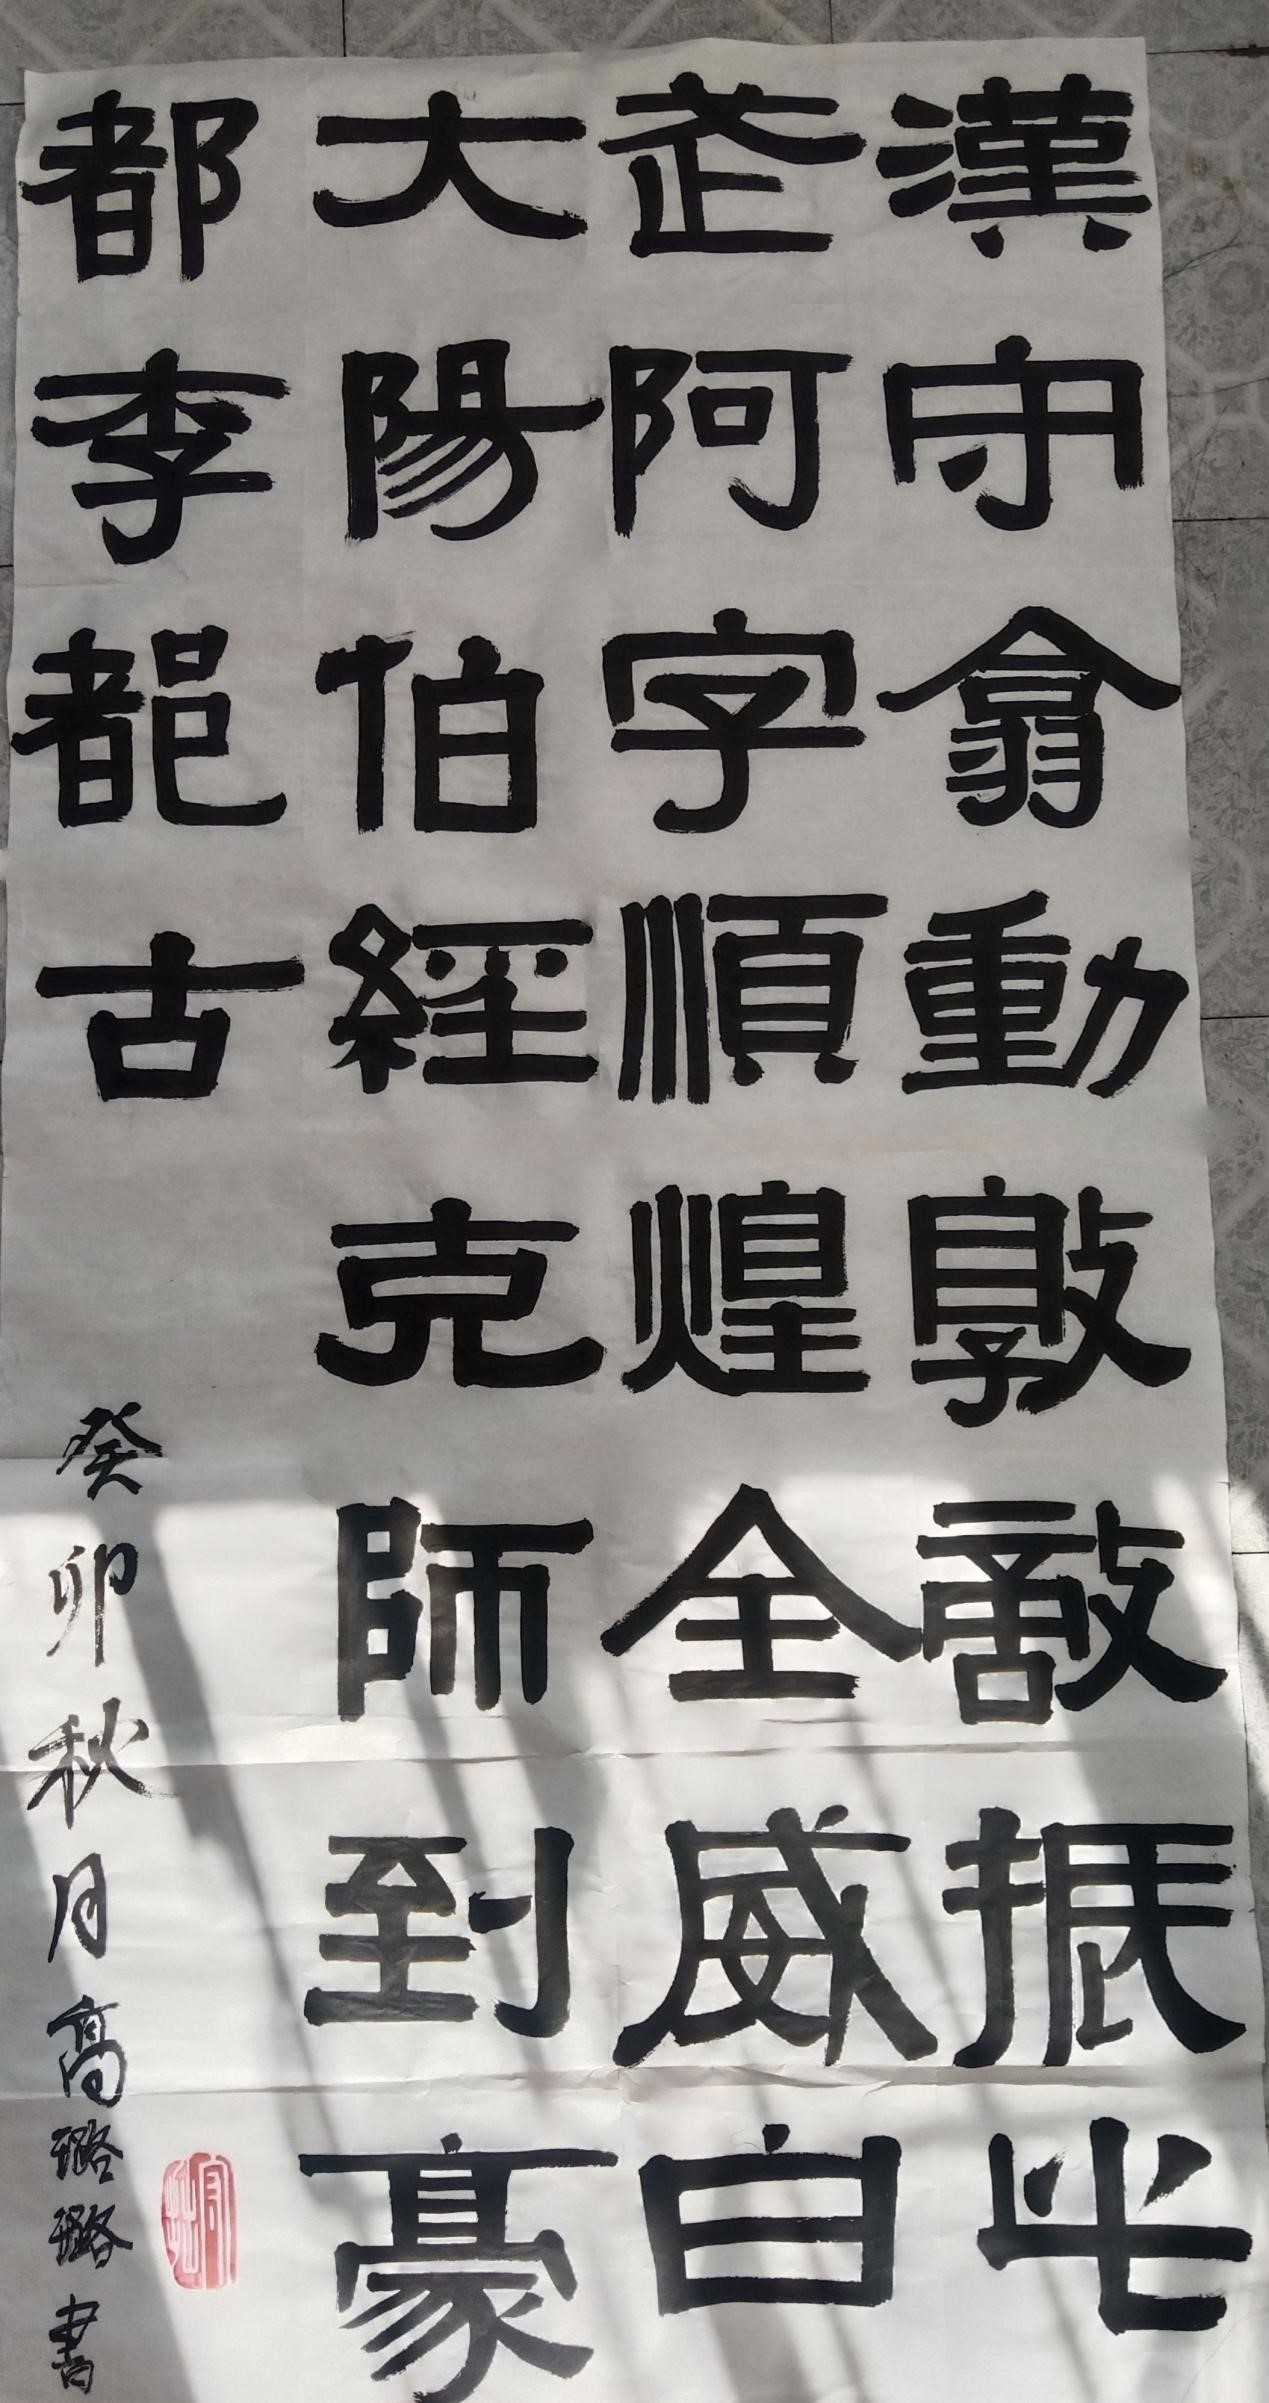 漢守翕動敦敵振此
芷阿字順煌全威白
大陽伯經克師到豪
都李郶古
癸卯秋月高璐璐書